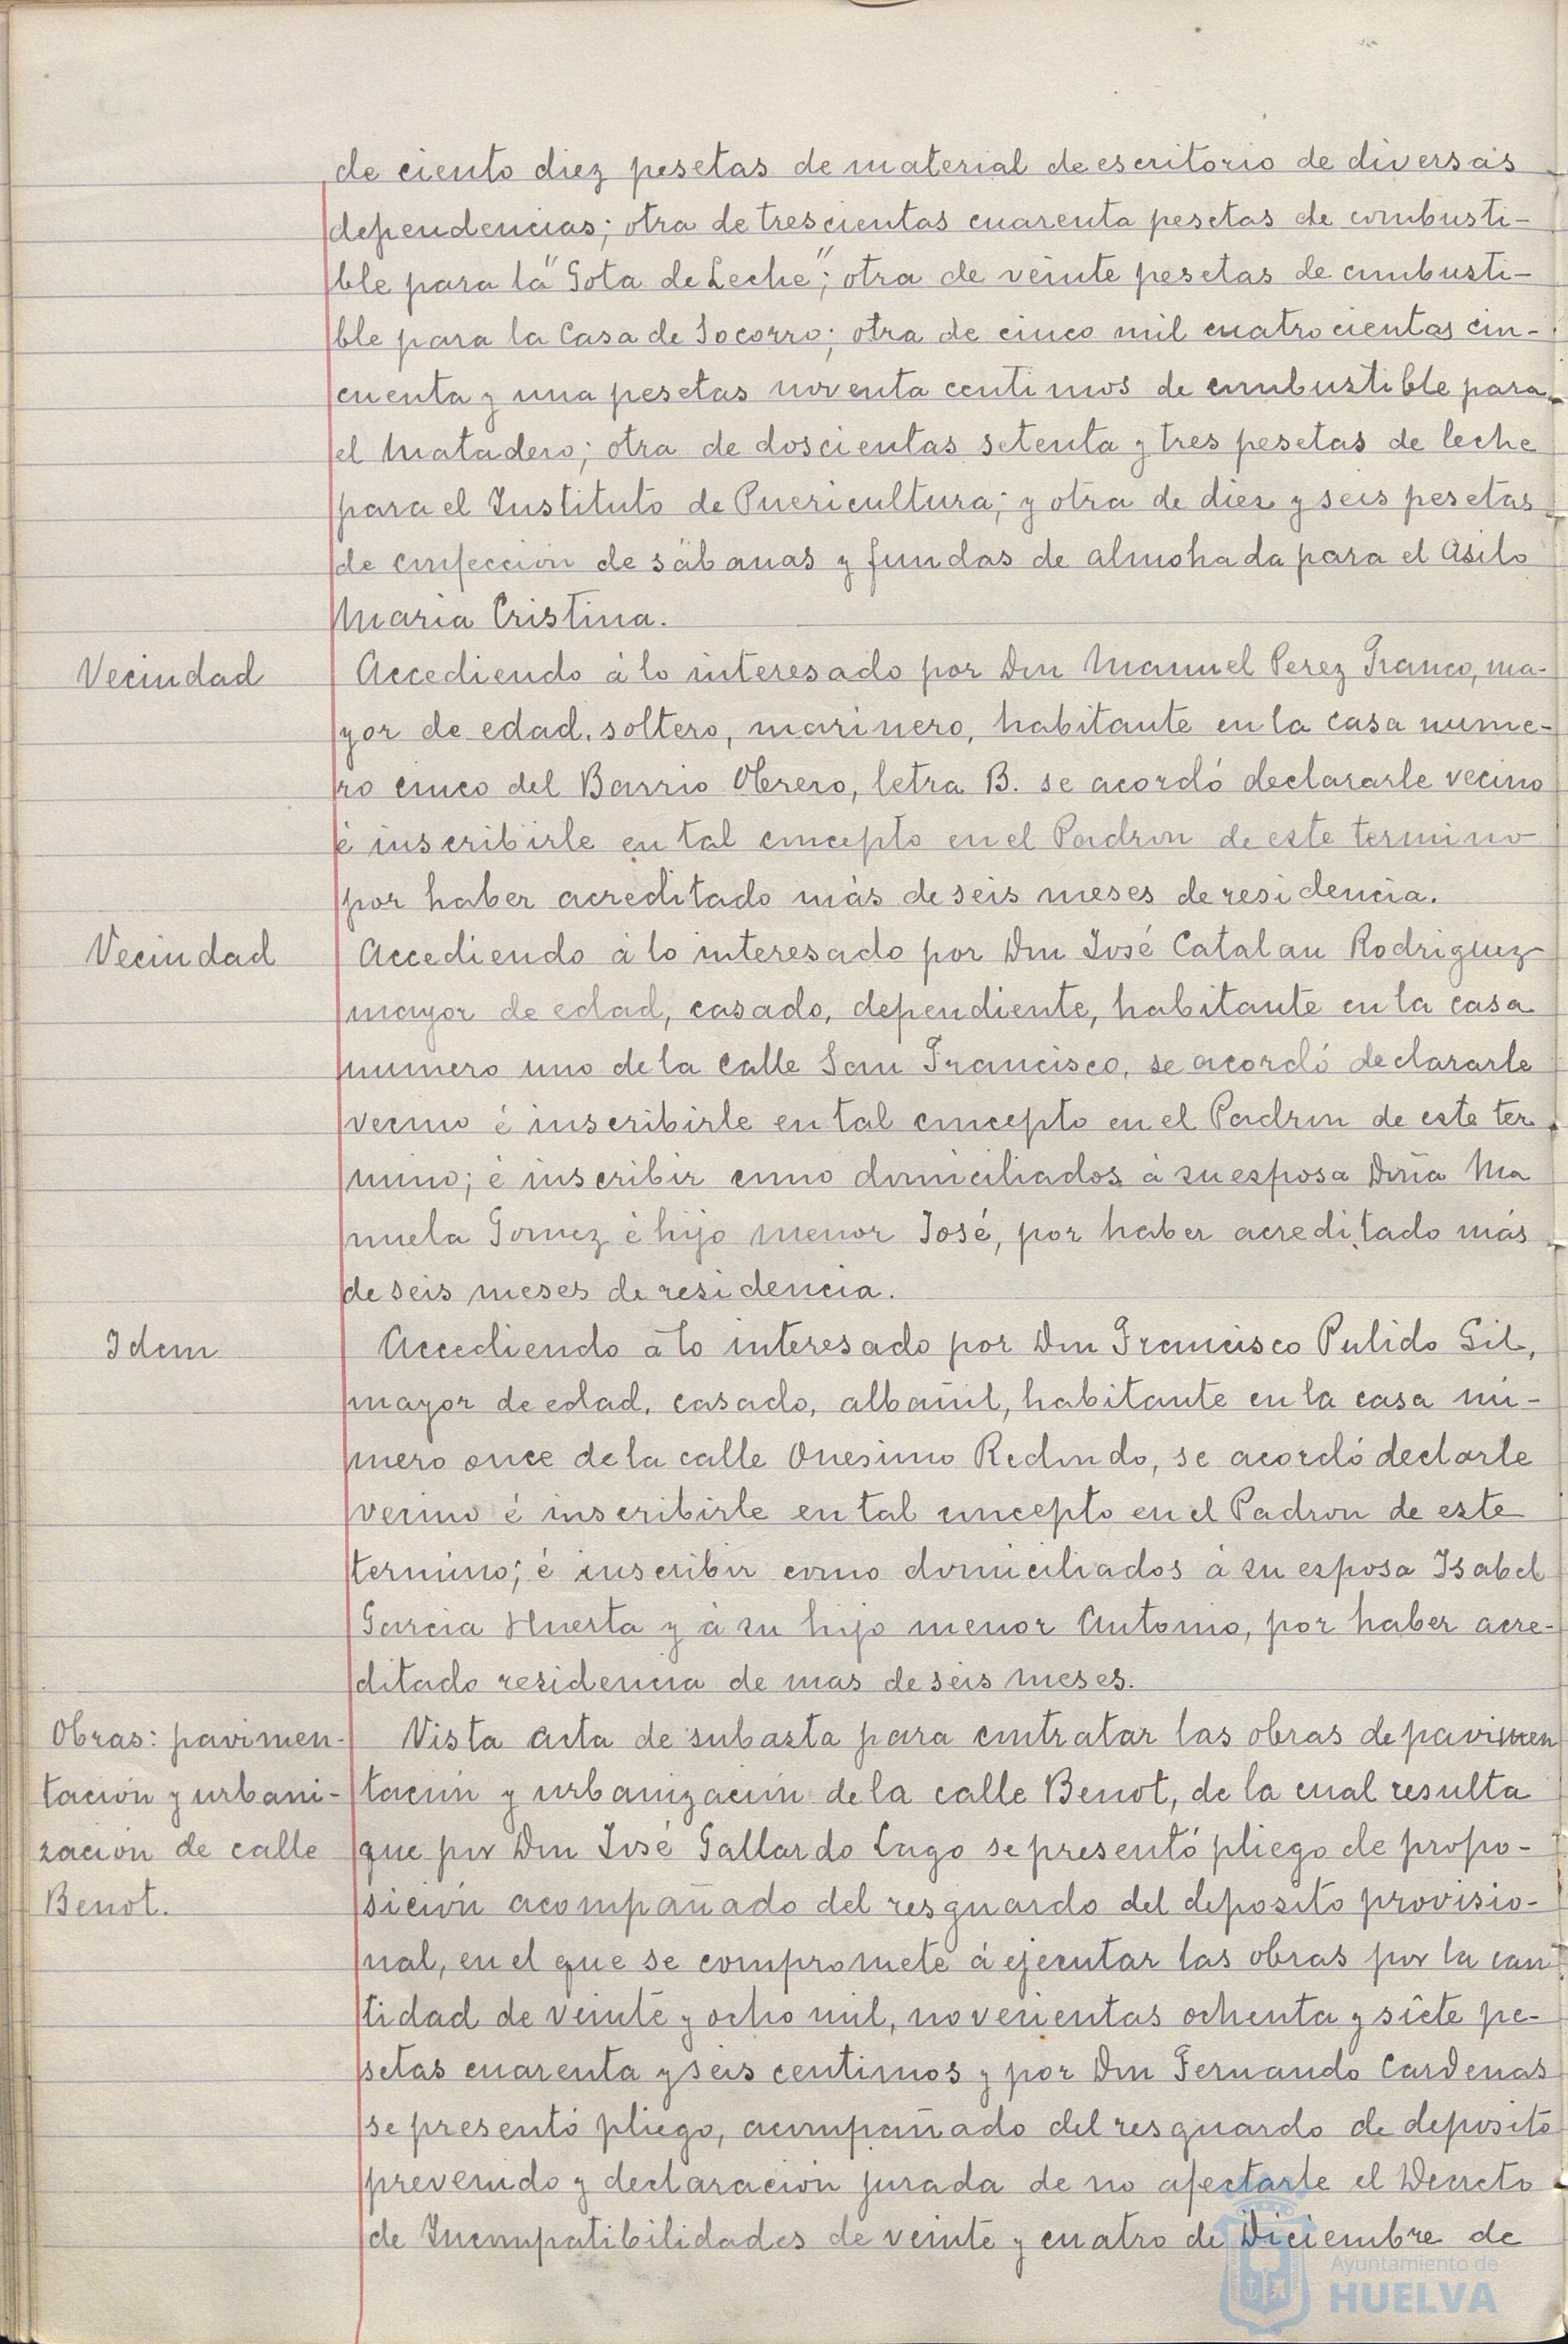 de ciento diez pesetas de material de escritorio de diversas
dependencias; otra de trescientas cuarenta pesetas de combusti-
ble para la "Gota de Leche"; otra de veinte pesetas de combusti-
ble para la Casa de Socorro; otra de cinco mil cuatrocientas cin-
cuenta y una pesetas noventa centimos de combustible para
el Matadero; otra de doscientas setenta y tres pesetas de leche
para el Instituto de Puericultura; y otra de diez y seis pesetas
de confección de sábanas y fundas de almohada para el Asilo
Maria Cristina.
Vecindad
Accediendo á lo interesado por Don Manuel Perez Franco, ma-
yor de edad, soltero, marinero, habitante en la casa nume-
ro cinco del Barrio Obrero, letra B. se acordó declararle vecino
é inscribirle en tal concepto en el Padron de este termino
por haber acreditado más de seis meses de residencia.
Vecindad
Accediendo á lo interesado por Don José Catalan Rodriguez
mayor de edad, casado, dependiente, habitante en la casa
numero uno de la calle San Francisco, se acordó declararle
vecino é inscribirle en tal concepto en el Padron de este ter
mino; é inscribir como domiciliados á su esposa Doña Ma
nuela Gomez é hijo menor José, por haber acreditado más
de seis meses de residencia.
Idem
Accediendo á lo interesado por Don Francisco Pulido Gil,
mayor de edad, casado, albañil, habitante en la casa nú-
mero once de la calle Onesimo Redondo, se acordó declarle
vecino é inscribirle en tal concepto en el Padron de este
termino; é inscribir como domiciliados á su esposa Isabel
Garcia Huerta y á su hijo menor Antonio, por haber acre-
ditado residencia de mas de seis meses.
Obras: pavimen-
tación y urbani-
zación de calle
Benot.
Vista acta de subasta para contratar las obras de pavimen
tación y urbanización de la calle Benot, de la cual resulta
que por Don José Gallardo Lago se presentó pliego de propo-
sición acompañado del resguardo del deposito provisio-
nal, en el que se compromete á ejecutar las obras por la can
tidad de veinte y ocho mil, novecientas ochenta y siete pe-
setas cuarenta y seis centimos y por Don Fernando Cardenas
se presentó pliego, acompañado del resguardo de deposito
prevenido y declaración jurada de no afectarle el Decreto
de Incompatibilidades de veinte y cuatro de Diciembre de
Ayuntamiento de
HUELVA